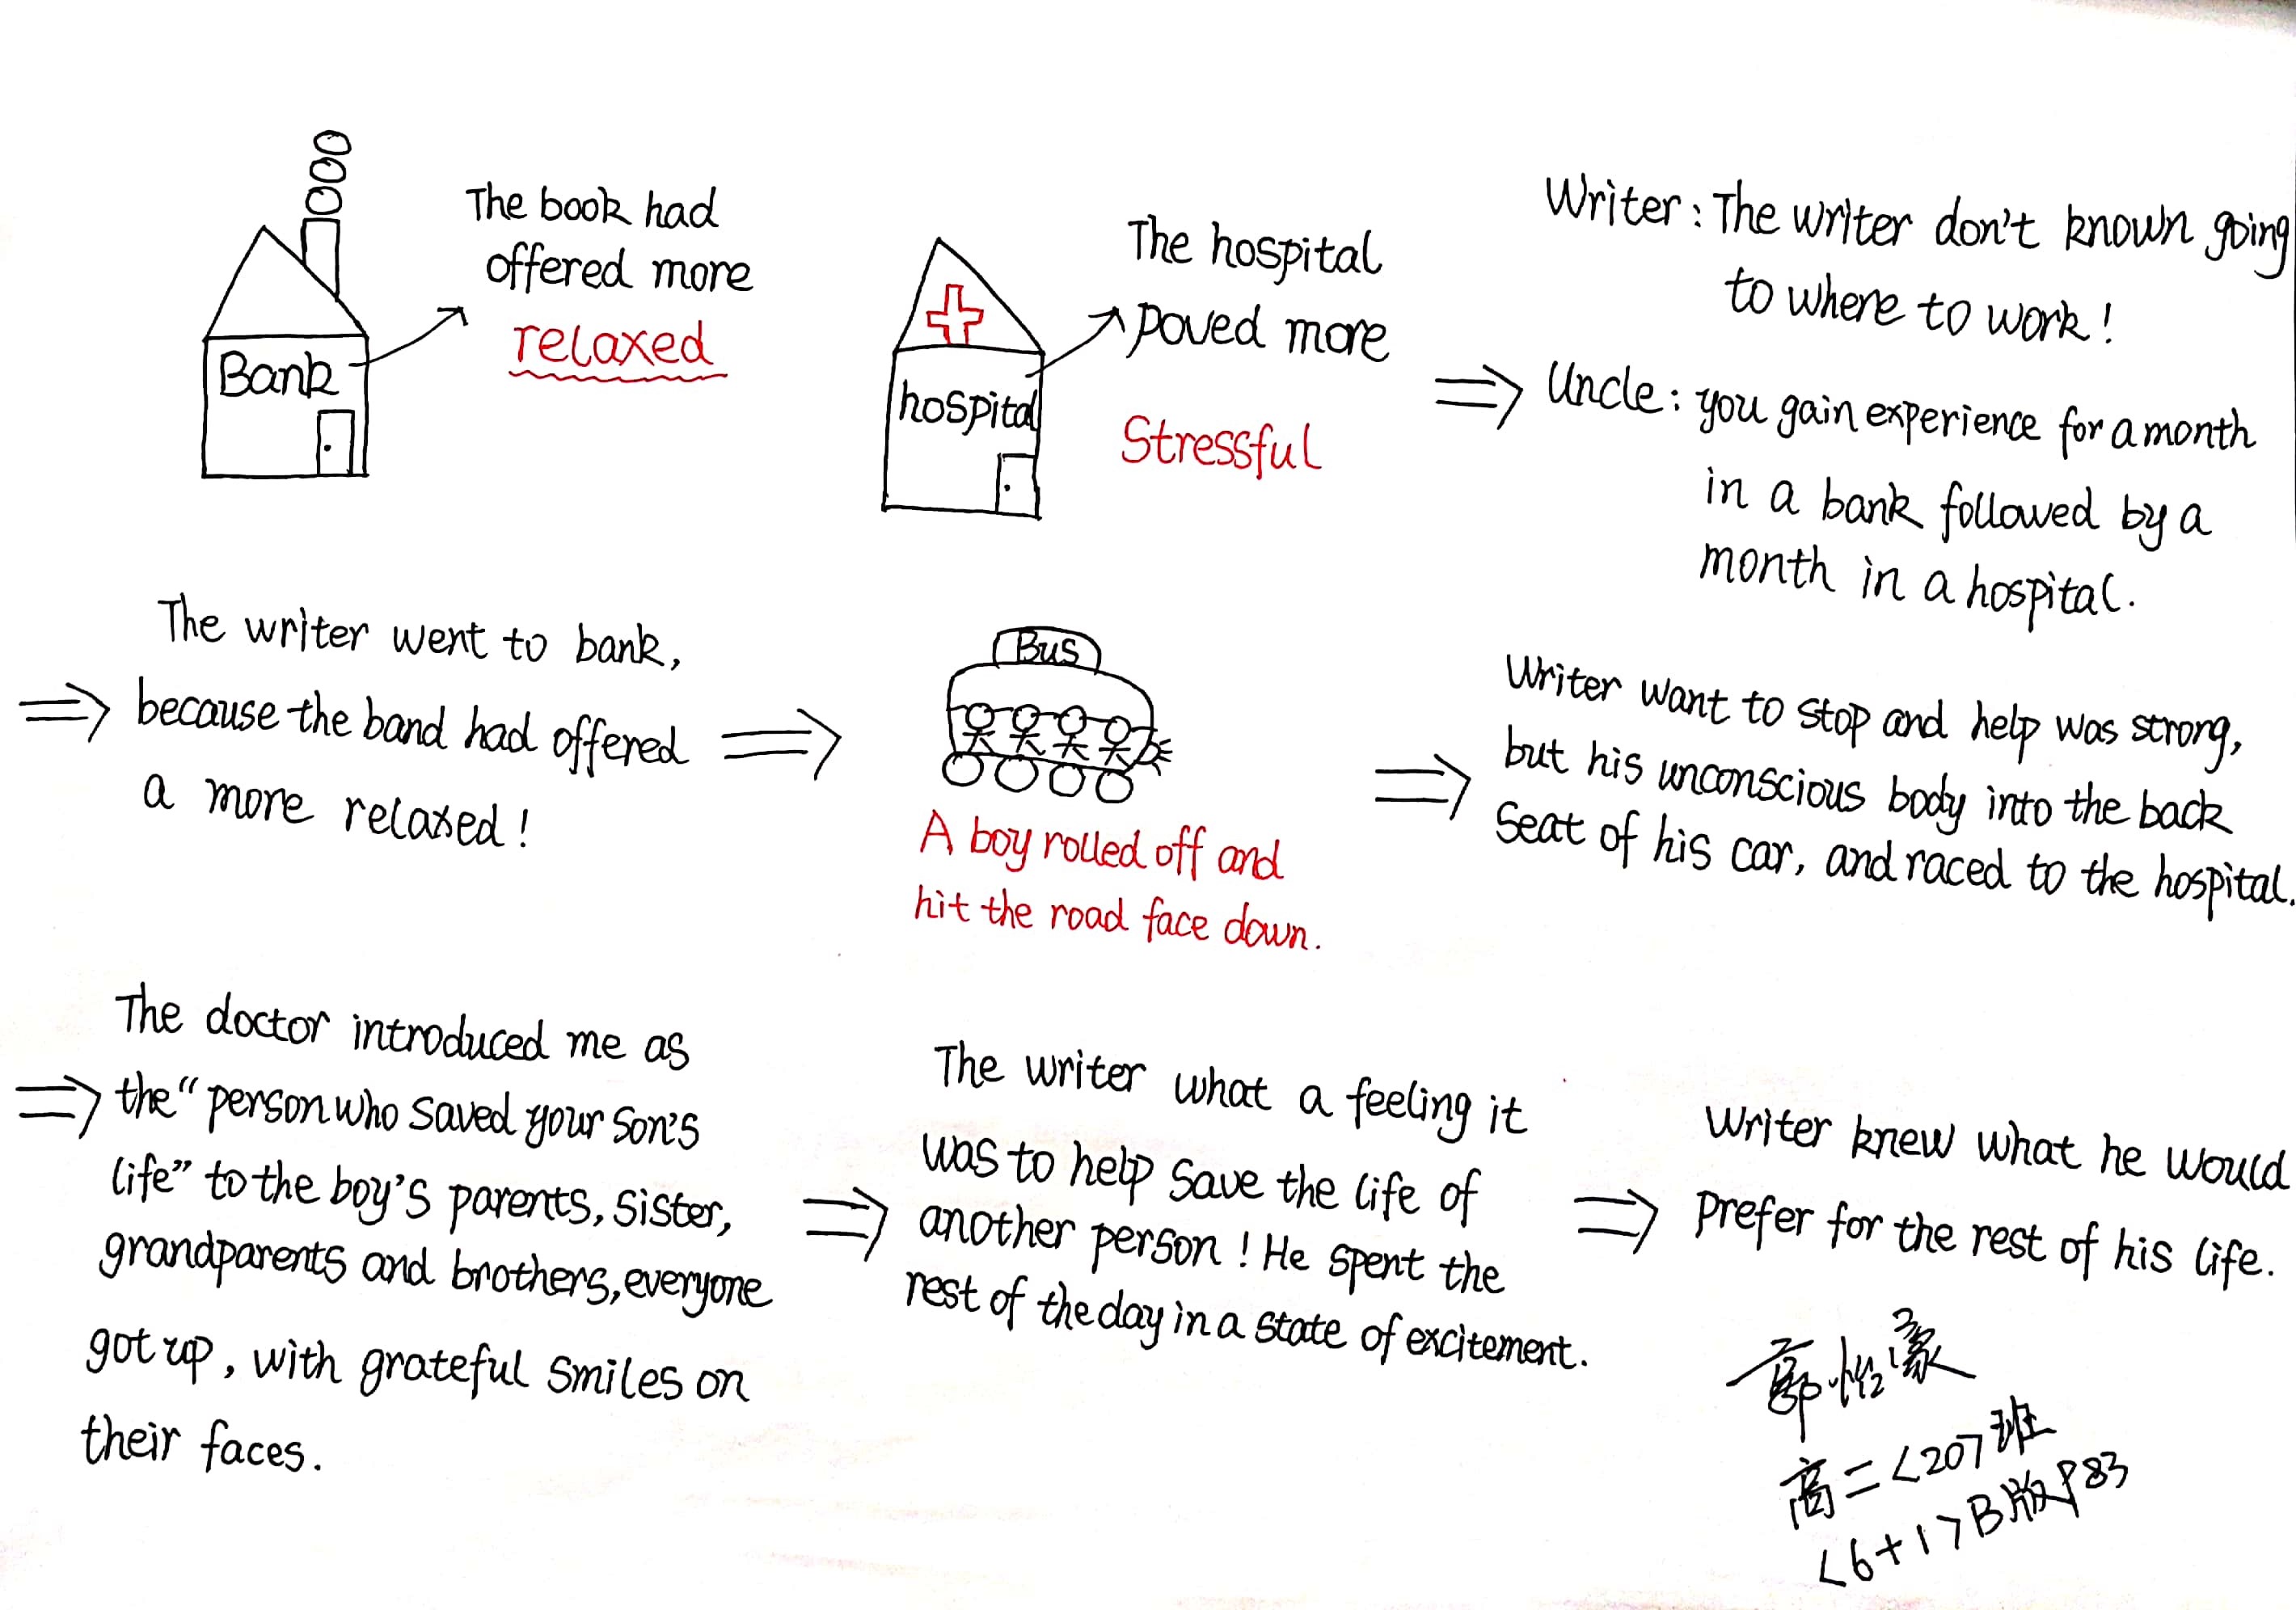 Bank
The book had
offered more
relaxed
hospital
The hospital
poved more
Stressful
Writer: The writer don't known going
to where to work!
Uncle: you gain experience for a month
in a bank followed by a
month in a hospital.
The writer went to bank,
because the band had offered
a more relaxed!
Bus
A boy rolled off and
hit the road face down.
Writer want to stop and help was strong,
but his unconscious body into the back
seat of his car, and raced to the hospital.
The doctor introduced me as
the "person who saved your son's
life" to the boy's parents, sister,
grandparents and brothers, everyone
got up, with grateful smiles on
their faces.
The writer what a feeling it
was to help save the life of
another person! He spent the
rest of the day in a state of excitement.
Writer knew what he would
prefer for the rest of his life.
郭怡濛
高二<207班
<6+1>B版P83